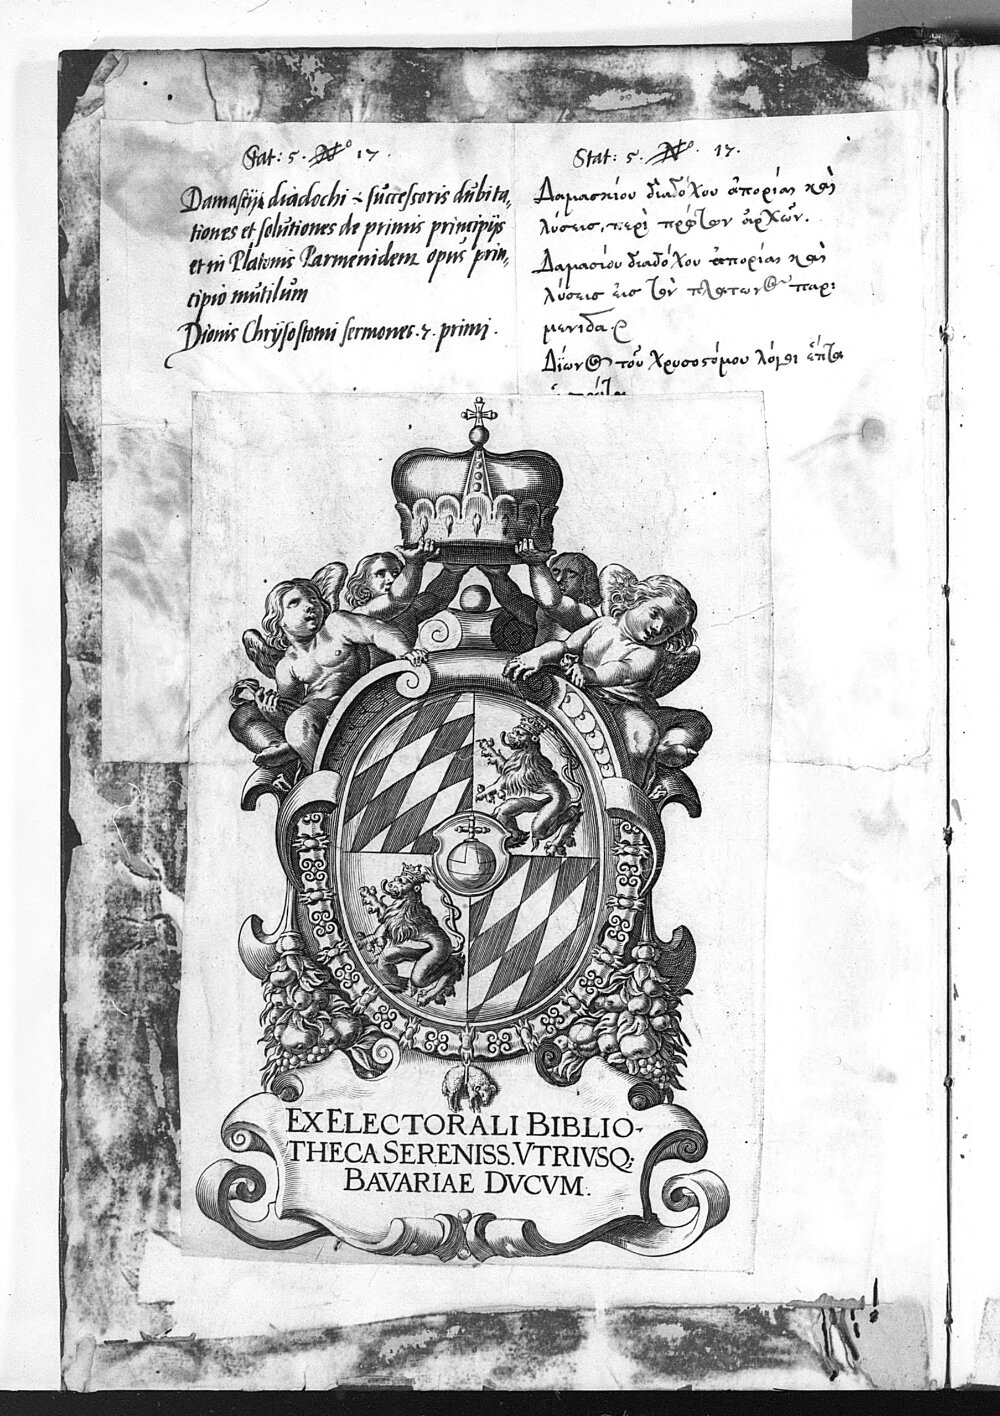 Stat: 5. No 17.
Damascij diadochi i successoris dubita„
tiones et solutiones de primis principijs
et in Platonis Parmenidem opus prin„
cipio mutilum
Dionis Chrysostomi sermones. 7. primi.
Stat: 5. No. 17.
Δαμασκίου διαδόχου ἀπορίαι καὶ
λύσεις, περὶ πρώτων ἀρχῶν.
Δαμασίου διαδόχου ἀπορίαι καὶ
λύσεισ εισ τὸν πλατωνος παρ:
μενιδα
Δίωνος τοῦ χρυσοστόμου λόγοι ἑπτα
EX ELECTORALI BIBLIO-
THECA SERENISS. VTRIVSQ;
BAVARIAE DVCVM.